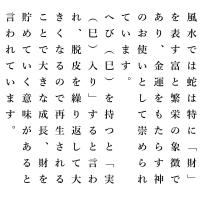 風水では蛇は特に「財」
を表す富と繁栄の象徴で
あり、金運をもたらす神
のお使いとして崇められ
ています。
へび（巳）を持つと「実
（巳）入り」すると言わ
れ、脱皮を繰り返して大
きくなるので再生される
ことで大きな成長、財を
貯めていく意味があると
言われています。